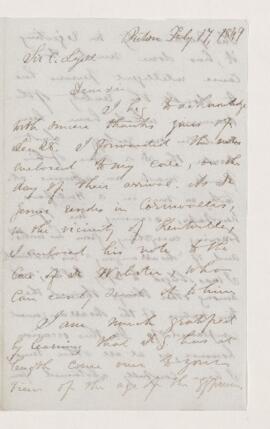 Pictou Feby. 17, 1849
Sir C. Lyell
Dear sir
I beg to acknowledge
with sincere thanks yours of
I forwarded the notes
enclosed to my care, on the
day of their arrival. As Dr
resides in Cornwallis,
in the vicinity of Kentville,
I enclosed his note to the
care of Dr Webster, who
can send it to him
I am much gratified
by learning that it has at
length come over to your
view of the age of the gypsum